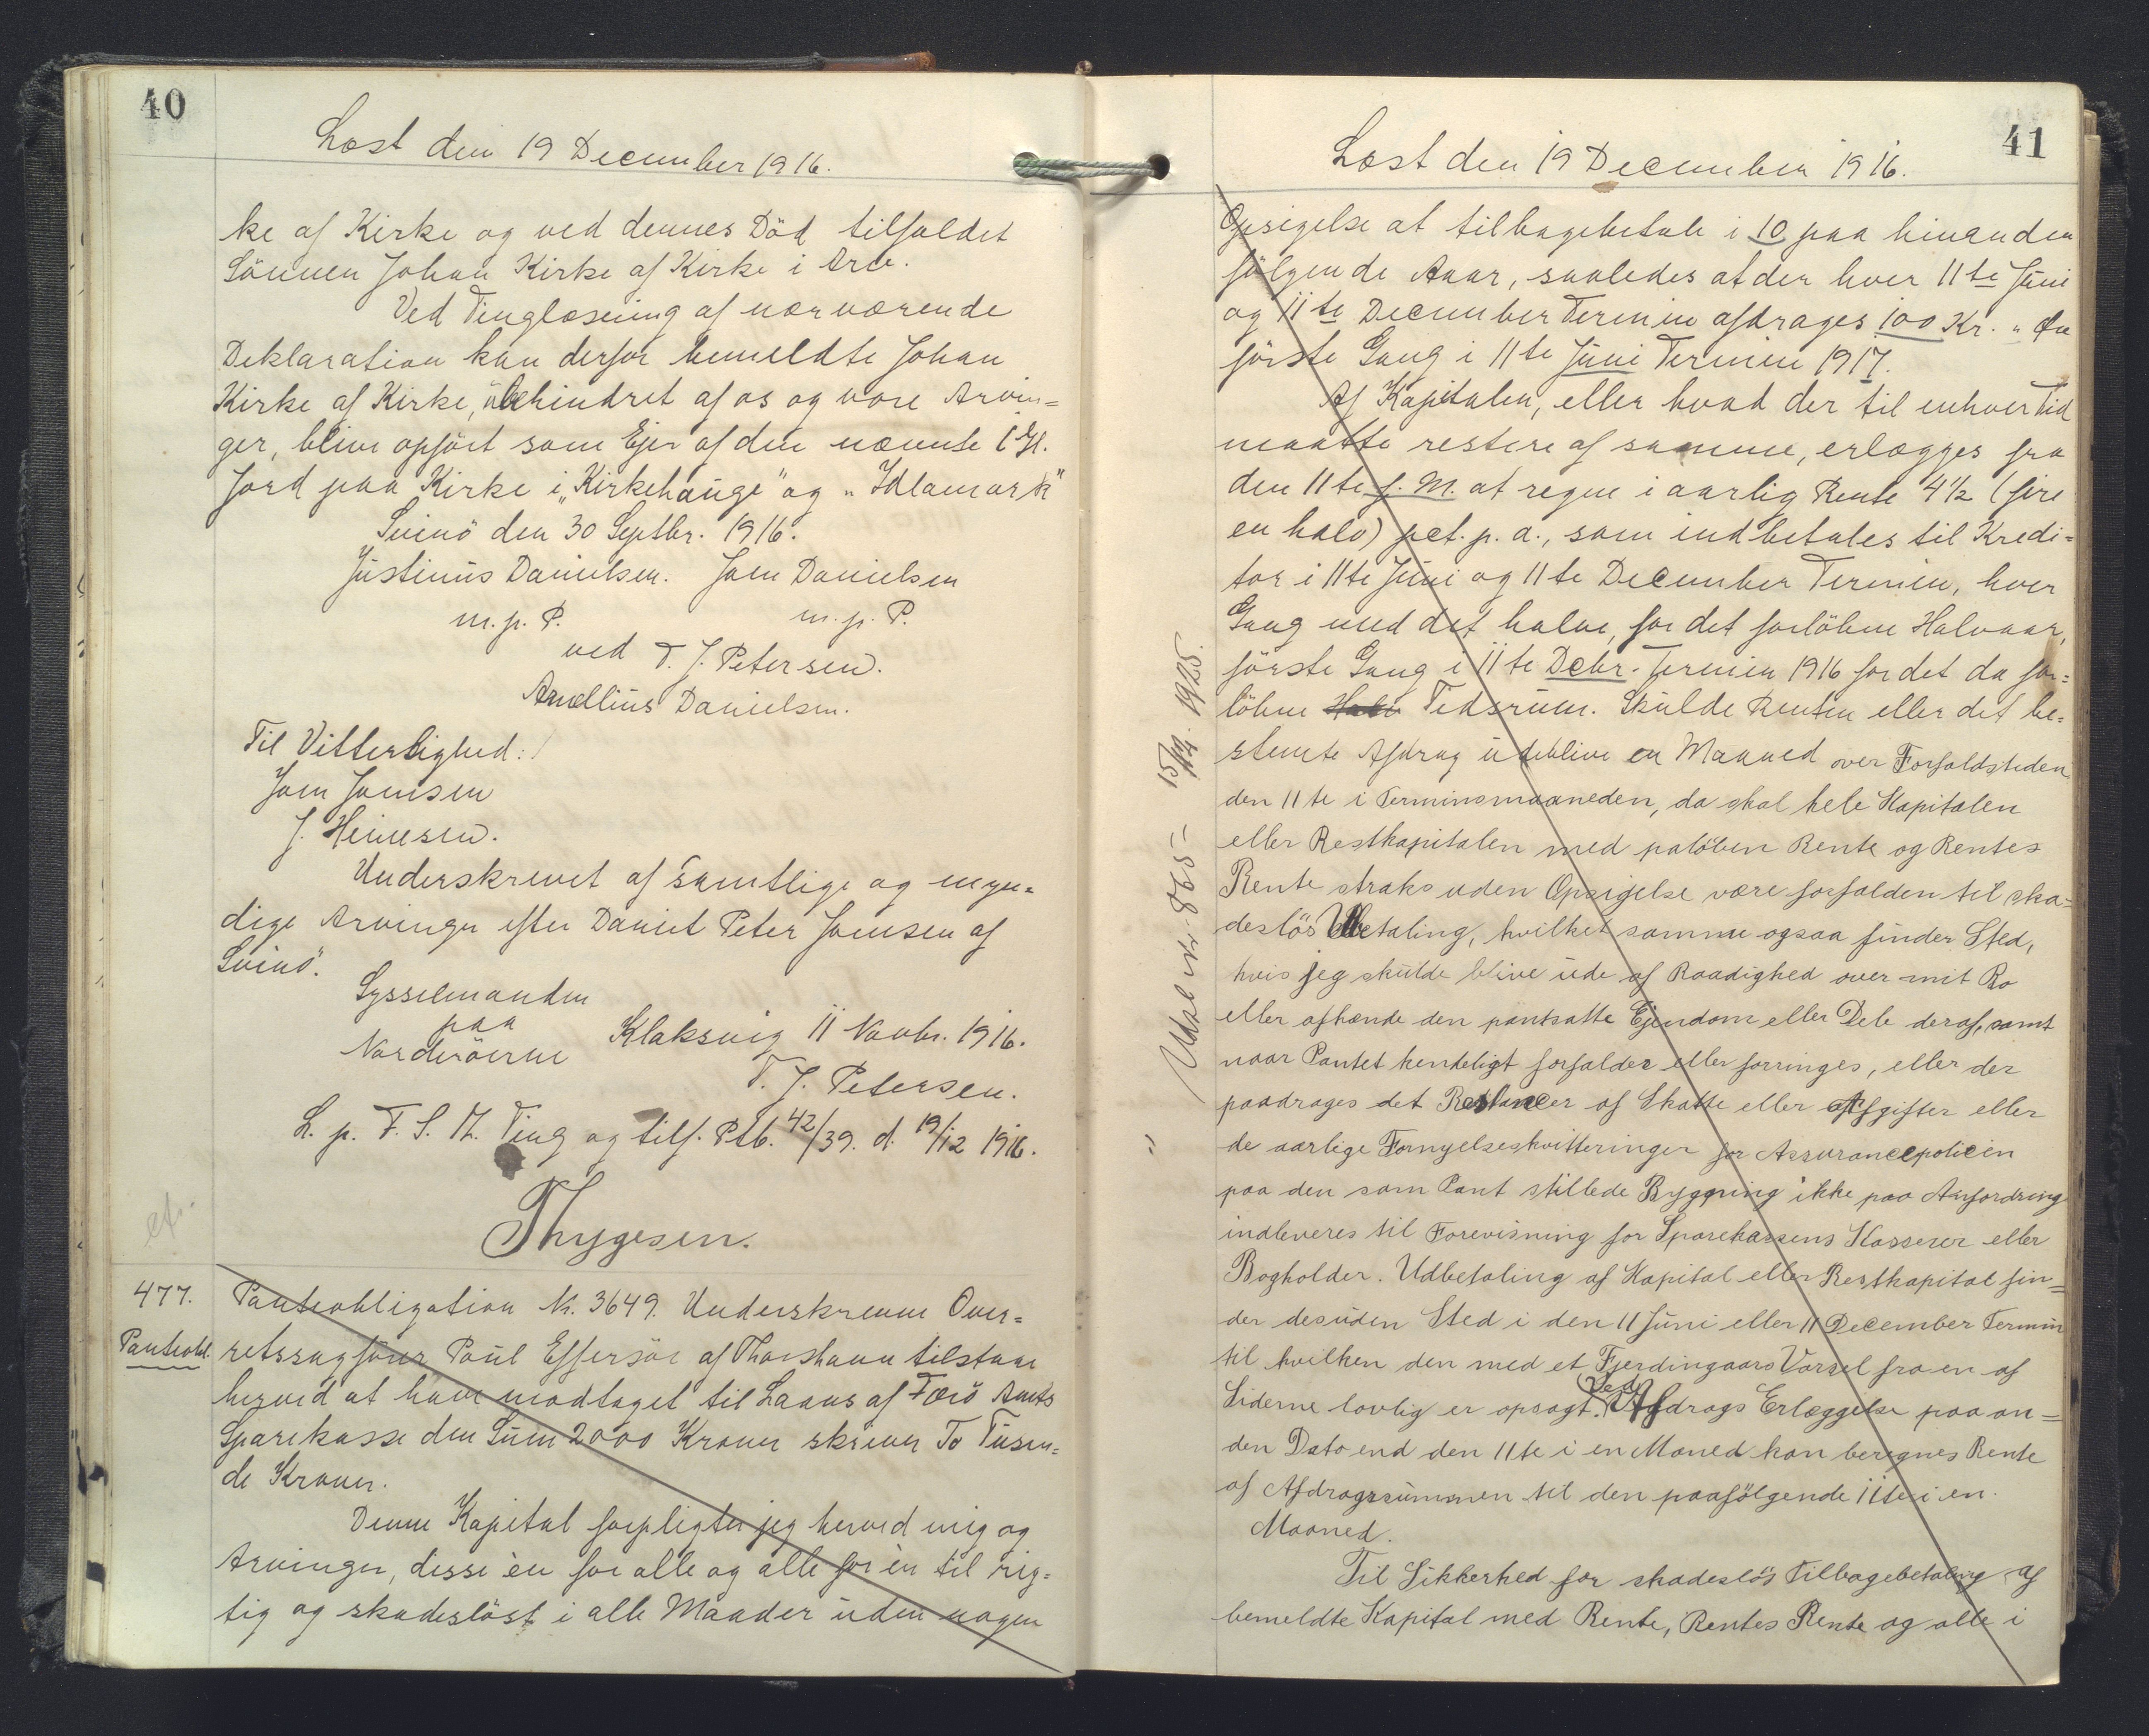 40
Læst den 19 December 1916.
ke af Kirke og ved dennes Död tilfaldet
Sönnen Johan Kirke af Kirke i Arv.
Ved Tinglæsning af nærværende
Deklaration kan derfor bemeldte Johan
Kirke af Kirke, ubehindret af os og vore Arvin=
ger, blive opfört som Ejer af den nævnte 1 Gl.
Jord paa Kirke i „Kirkehauge" og „Idlamark"
Svinö den 30 Septbr. 1916.
Justinus Danielsen. Joen Danielsen
m. p. P. m. p. P.
ved T. J. Petersen.
Anællius Danielsen.
Til Vitterlighed:
Joen Joensen
J. Heinesen.
Underskrevet af samtlige og myn=
dige Arvinger efter Daniel Peter Joensen af
Svinö.
Sysselmanden
paa
Norderöerne Klaksvig 11 Novbr. 1916.
T. J. Petersen.
L. p. F. S. M. Ting og tilf. Ptb. 42/39. d. 19/12 1916.
Thygesen.
477.
Panteobl.
Panteobligation Nr. 3649. Underskrevne Over=
retssagförer Poul Effersöe af Thorshavn tilstaar
herved at have modtaget til Laans af Færö Amts
Sparekasse den Sum 2000 Kroner skriver To Tusin=
de Kroner.
Denne Kapital forpligter jeg herved mig og
Arvinger, disse èn for alle og alle for èn til rig=
tig og skadeslöst i alle Maader uden nogen
41
Læst den 19 December 1916.
Opsigelse at tilbagebetale i 10 paa hinanden
fölgende Aaar, saaledes at der hver 11te Juni
og 11te December Termin afdrages 100 Kr. „ Øre
förste Gang i 11te Juni Termin 1917.
Af Kapitalen, eller hvad der til enhver Tid
maatte restere af samme, erlægges fra
den 11te f. M. at regne i aarlig Rente 4½ (fire
en halv) pct. p. a., som indbetales til Kredi=
tor i 11te Juni og 11te December Termin, hver
Gang med det halve, for det forlöbne Halvaar,
förste Gang i 11te Decbr. Termin 1916 for det da for=
löbne Halv Tidsrum. Skulde Renten eller det be=
stemte Afdrag udeblive en Maaned over Forfaldstiden
den 11te i Terminsmaaneden, da skal hele Kapitalen
eller Restkapitalen med paløben Rente og Rentes
Rente straks uden Opsigelse være forfalden til ska=
deslös Udbetaling, hvilket samme ogsaa finder Sted,
hvis jeg skulde blive ude af Raadighed over mit Bo
eller afhænde den pantsatte Ejendom eller Dele deraf, samt
naar Pantet kendeligt forfalder eller forringes, eller der
paadrages det Restancer af Skatte eller Afgifter eller
de aarlige Fornyelseskvitteringer for Assurancepolicen
paa den som Pant stillede Bygning ikke paa Anfordring
indleveres til Forevisning for Sparekassens Kasserer eller
Bogholder. Udbetaling af Kapital eller Restkapital fin=
der desuden Sted i den 11 Juni eller 11 December Termin
til hvilken den med et Fjerdingaars Varsel fra en af
Siderne lovlig er opsagt. Ved Afdrags Erlæggelse paa an=
den Dato end den 11te i en Maned kan beregnes Rente
af Afdragssummen til den paafölgende 11te i en
Maaned.
Til Sikkerhed for skadeslös Tilbagebetaling af
bemeldte Kapital med Rente, Rentes Rente og alle i
15/12. 1925.